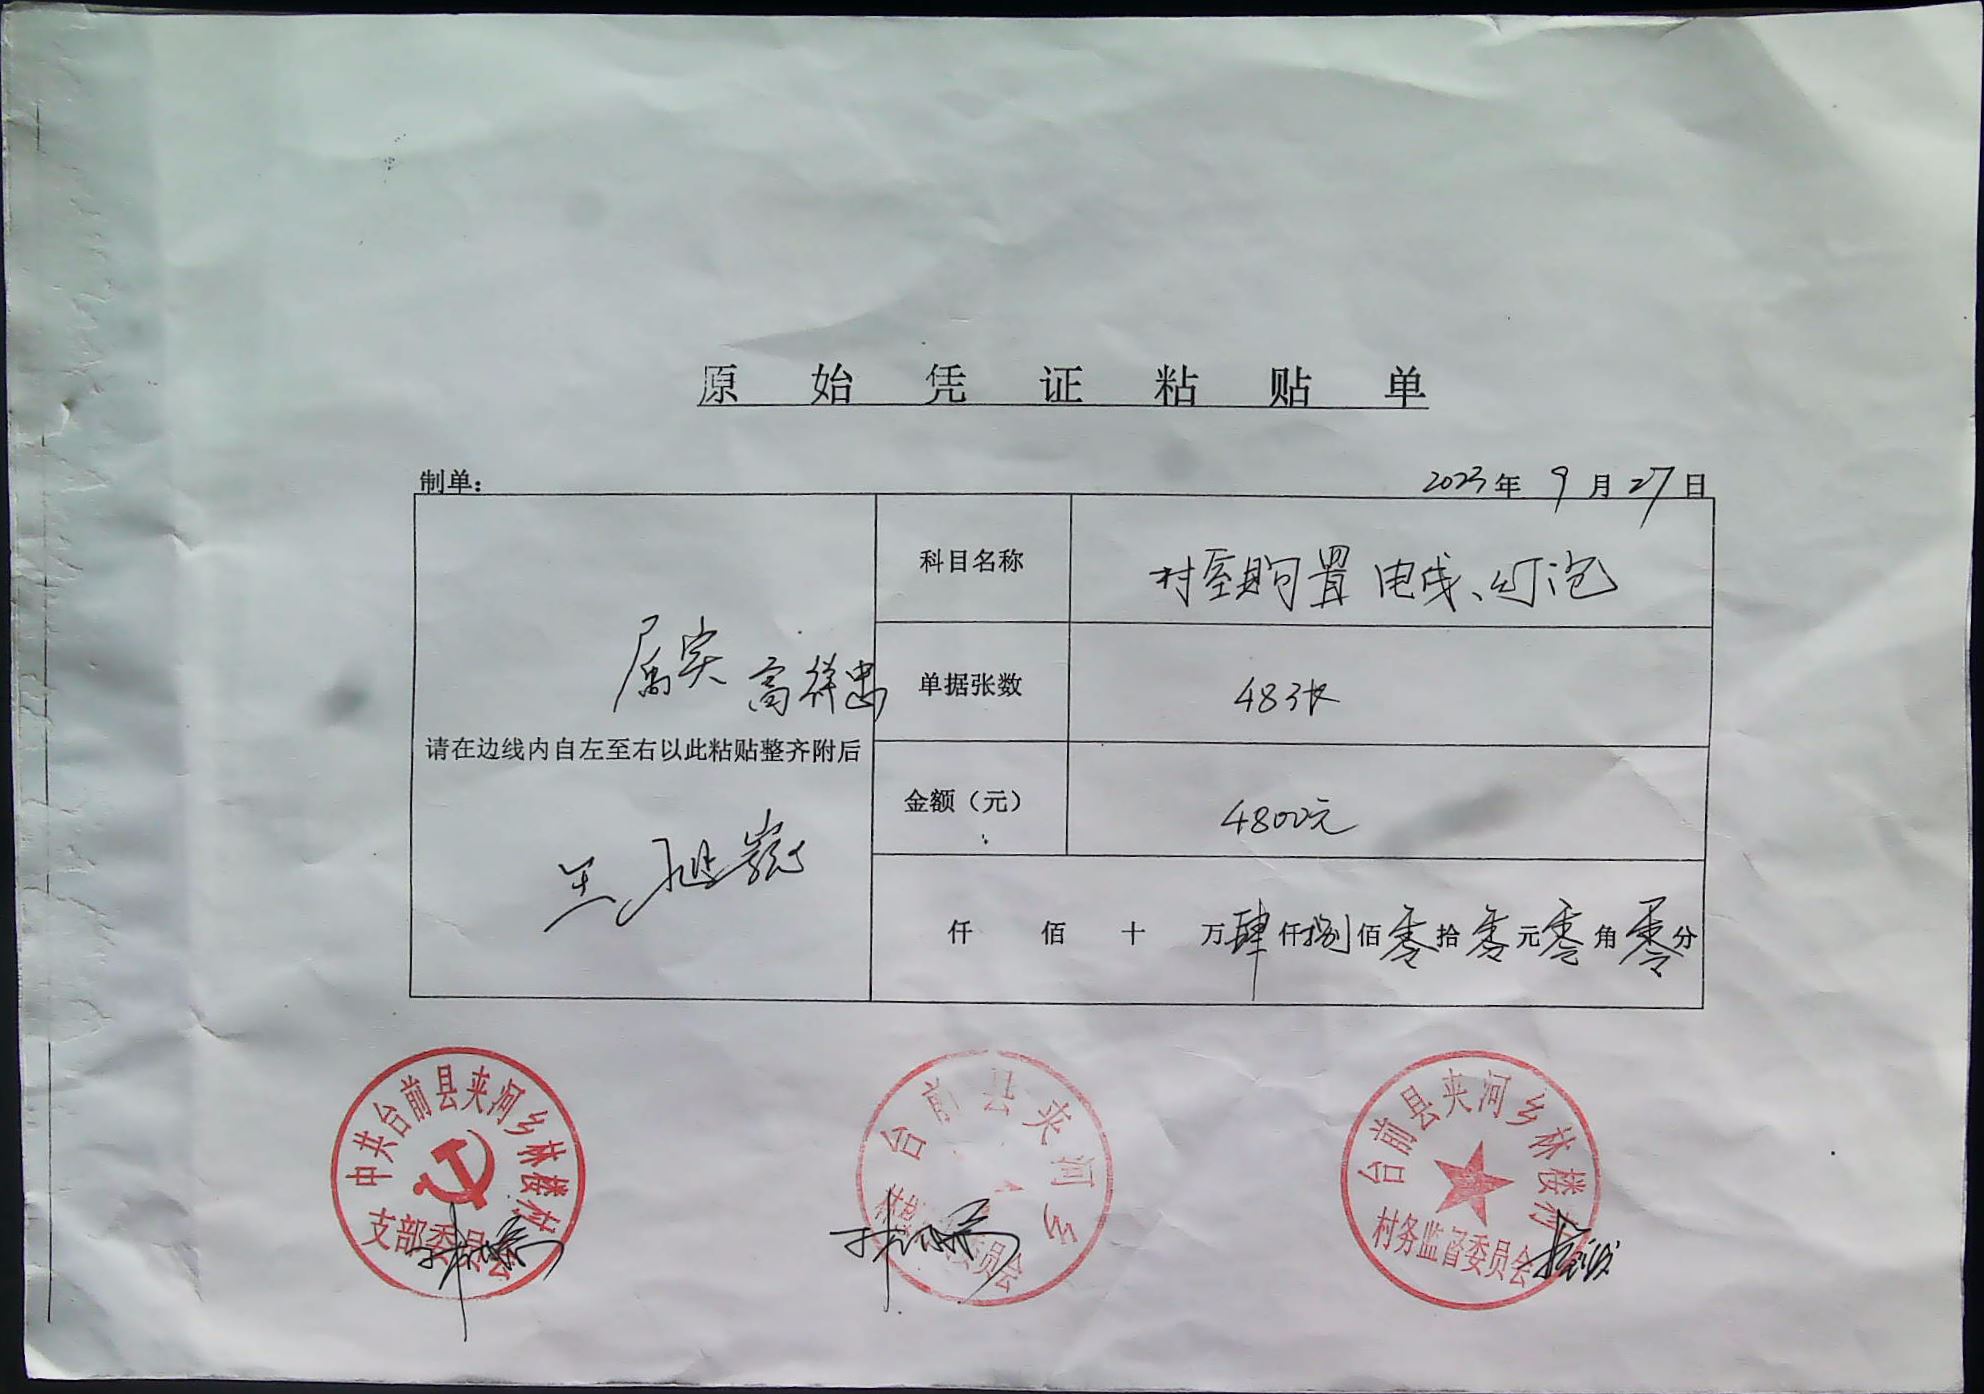 原始凭证粘贴单
制单:
2023年9月27日
科目名称
村室购置 电线、灯泡
属实 高祥忠
单据张数
48张
请在边线内自左至右以此粘贴整齐附后
金额（元）
4800元
仟 佰 十 万肆仟捌佰零拾零元零角零分
中共台前县夹河乡林楼村
支部委员会
台前县夹河乡
林楼 委员会
台前县夹河乡林楼村
村务监督委员会